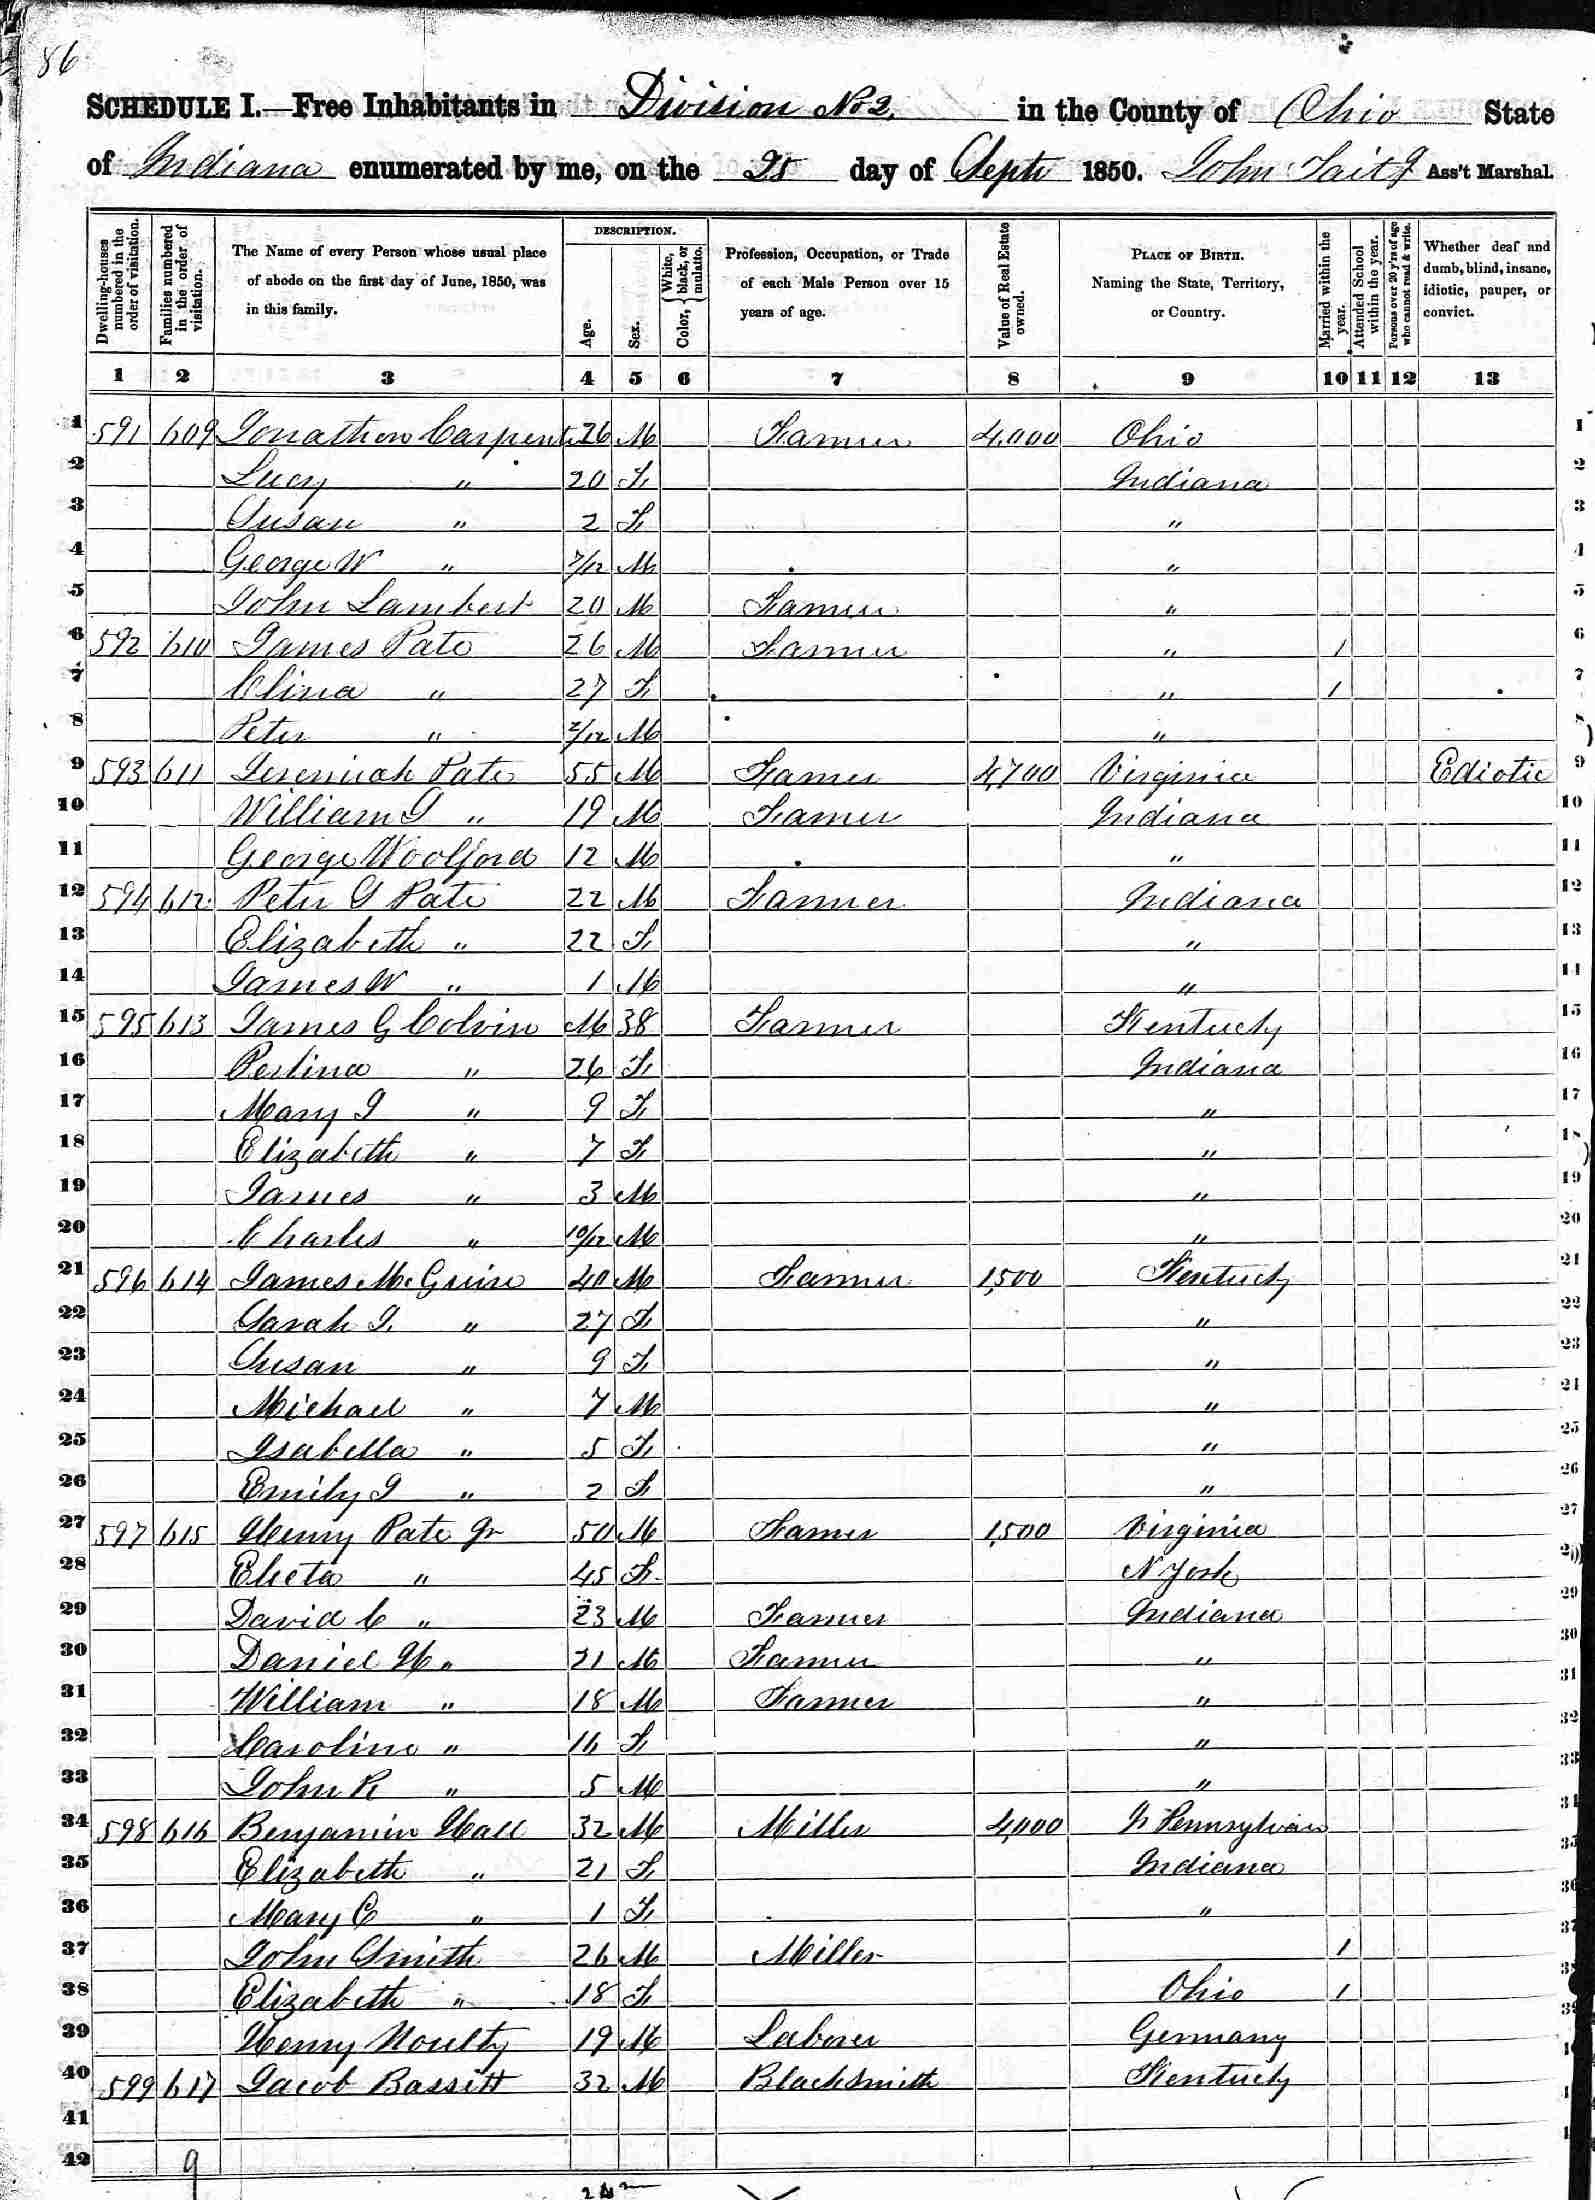 86
SCHEDULE I.—Free Inhabitants in Division No 2. in the County of Ohio State
of Indiana enumerated by me, on the 25 day of Septr 1850. John Tait Jr Ass't Marshal.
Dwelling-houses numbered in the order of visitation. Families numbered in the order of visitation. The Name of every Person whose usual place of abode on the first day of June, 1850, was in this family. DESCRIPTION. Age. Sex. Color, { White, black, or mulatto. Profession, Occupation, or Trade of each Male Person over 15 years of age. Value of Real Estate owned. PLACE OF BIRTH. Naming the State, Territory, or Country. Married within the year. Attended School within the year. Persons over 20 y'rs of age who cannot read & write. Whether deaf and dumb, blind, insane, idiotic, pauper, or convict.
1 2 3 4 5 6 7 8 9 10 11 12 13
1 591 609 Jonathon Carpenter 26 M Farmer 4,000 Ohio 1
2 Lucy " 20 F Indiana 2
3 Susan " 2 F " 3
4 George W " 7/12 M " 4
5 John Lambert 20 M Farmer " 5
6 592 610 James Pate 26 M Farmer " 1 6
7 Clina " 27 F " 1 7
8 Peter " 2/12 M " 8
9 593 611 Jeremiah Pate 55 M Farmer 4,700 Virginia Ediotic 9
10 William J " 19 M Farmer Indiana 10
11 George Woolford 12 M " 11
12 594 612 Peter J Pate 22 M Farmer Indiana 12
13 Elizabeth " 22 F " 13
14 James W " 1 M " 14
15 595 613 James G Colvin M 38 Farmer Kentucky 15
16 Perlina " 26 F Indiana 16
17 Mary J " 9 F " 17
18 Elizabeth " 7 F " 18
19 James " 3 M " 19
20 Charles " 10/12 M " 20
21 596 614 James McGuire 40 M Farmer 1,500 Kentucky 21
22 Sarah J. " 27 F " 22
23 Susan " 9 F " 23
24 Michael " 7 M " 24
25 Isabella " 5 F " 25
26 Emily J " 2 F " 26
27 597 615 Henry Pate Jr 50 M Farmer 1,500 Virginia 27
28 Electa " 45 F N York
29 David C " 23 M Farmer Indiana 29
30 Daniel H " 21 M Farmer " 30
31 William " 18 M Farmer " 31
32 Caroline " 16 F " 32
33 John R " 5 M " 33
34 598 616 Benjamin Hall 32 M Miller 4,000 Pennsylvan
35 Elizabeth " 21 F Indiana
36 Mary C " 1 F "
37 John Smith 26 M Miller 1
38 Elizabeth " 18 F Ohio 1
39 Henry Noulty 19 M Laborer Germany
40 599 617 Jacob Bassett 32 M Blacksmith Kentucky
41
42 9